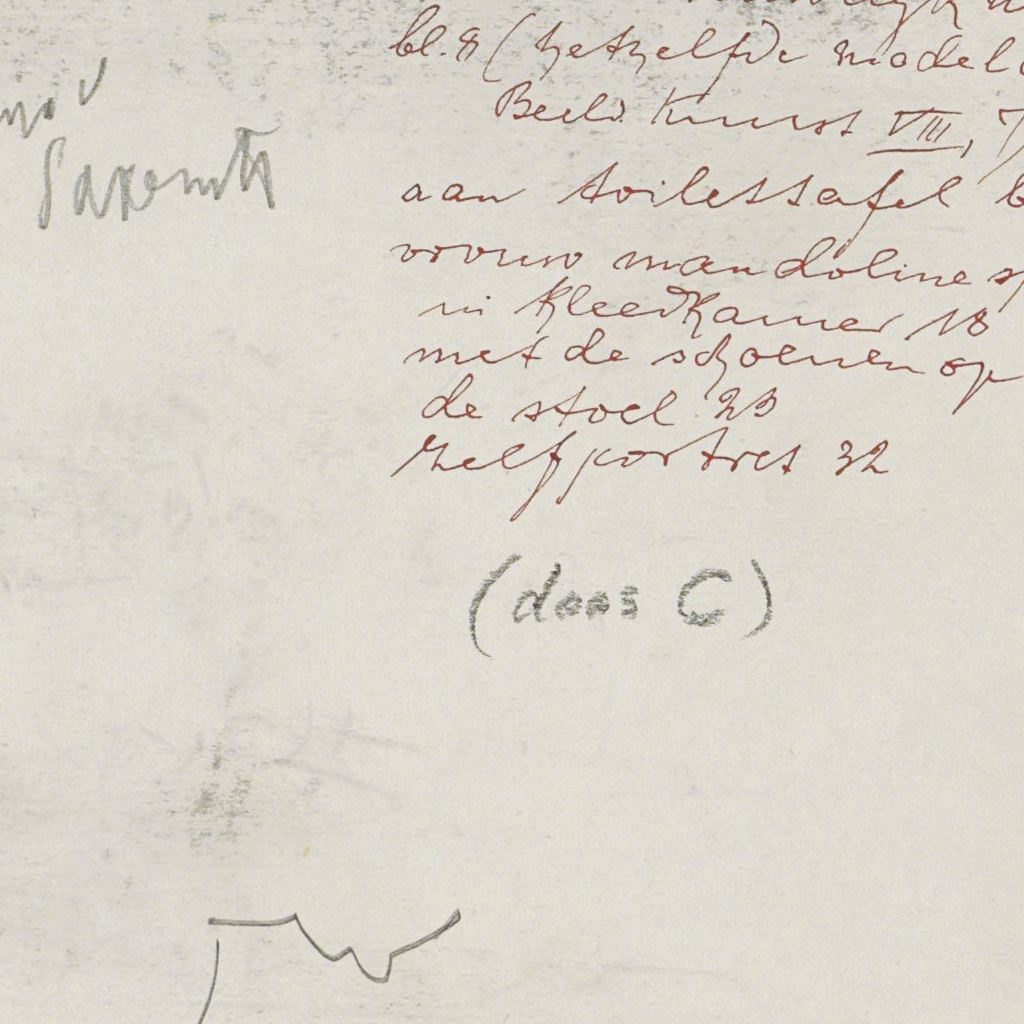 bl. 8 (hetzelfde model
Beeld. Kunst VIII,
aan toilettafel
vrouw mandoline
in kleedkamer 18
met de schoenen op
de stoel 23
zelfportret 32
(doos C)